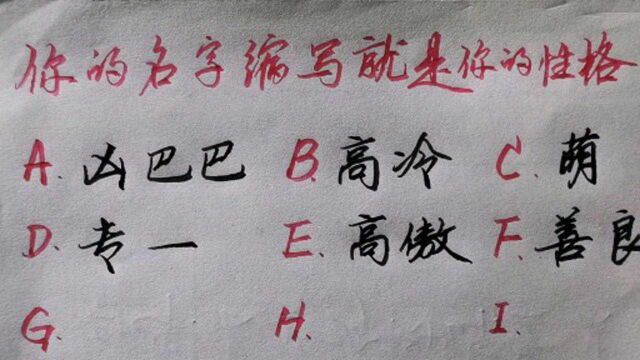 你的名字缩写就是你的性格
A. 凶巴巴 B. 高冷 C. 萌
D. 专一 E. 高傲 F. 善良
G. H. I.